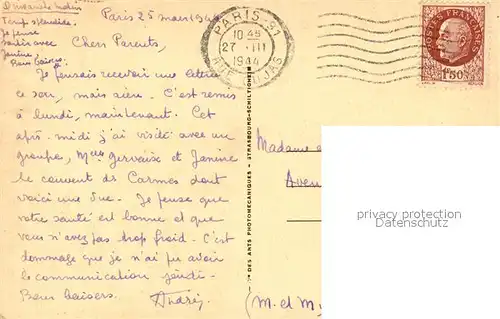 Dimanche matin
Temps splendide.
Je pense
sortir avec
Janine,
Bons baisers.
Paris 25 mars 1944
Chers Parents,
Je pensais recevoir une lettre
ce soir, mais rien. C'est remis
à lundi, maintenant. Cet
après-midi j'ai visité avec un
groupe, Melle Gervaise et Janine
le couvent des Carmes dont
voici une vue. Je pense que
votre santé est bonne et que
vous n'avez pas trop froid. C'est
dommage que je n'ai pu avoir
la communication jeudi.
Bons baisers. André
PARIS-91
10 45
27 III
1944
RUE CUJAS
POSTES FRANÇAISES
1F50
DES ARTS PHOTOMÉCANIQUES - STRASBOURG-SCHILTIGHEIM
Madame e
Aven
(M. et M
privacy protection